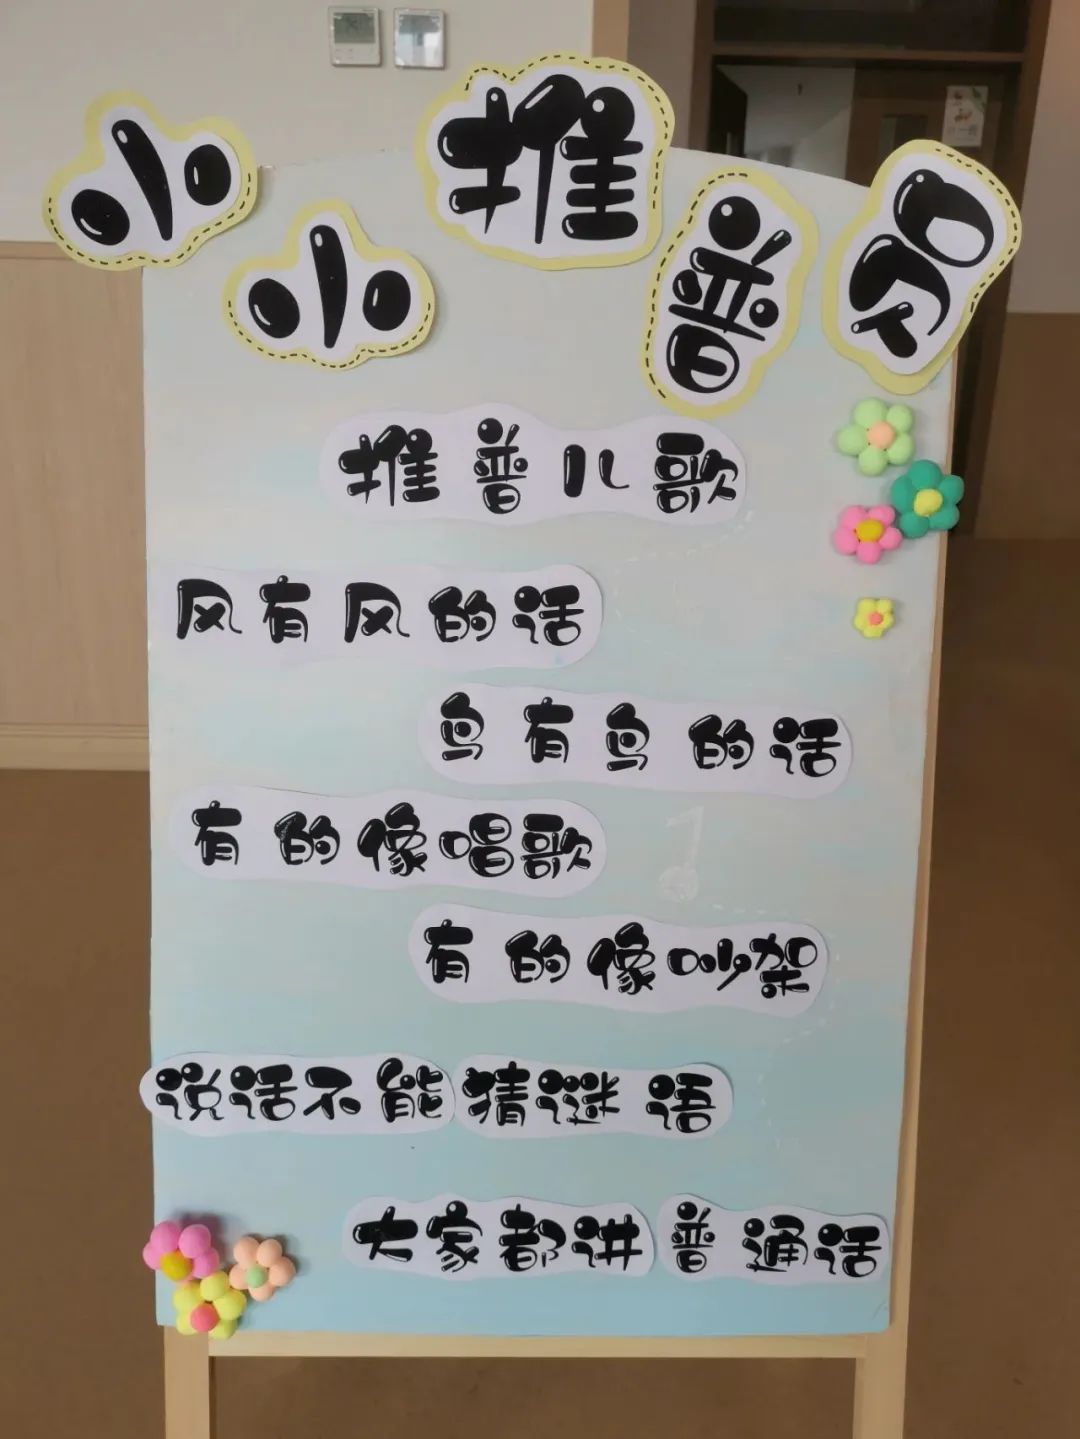 小小推普员
推普儿歌
风有风的话
鸟有鸟的话
有的像唱歌
有的像吵架
说话不能猜谜语
大家都讲普通话